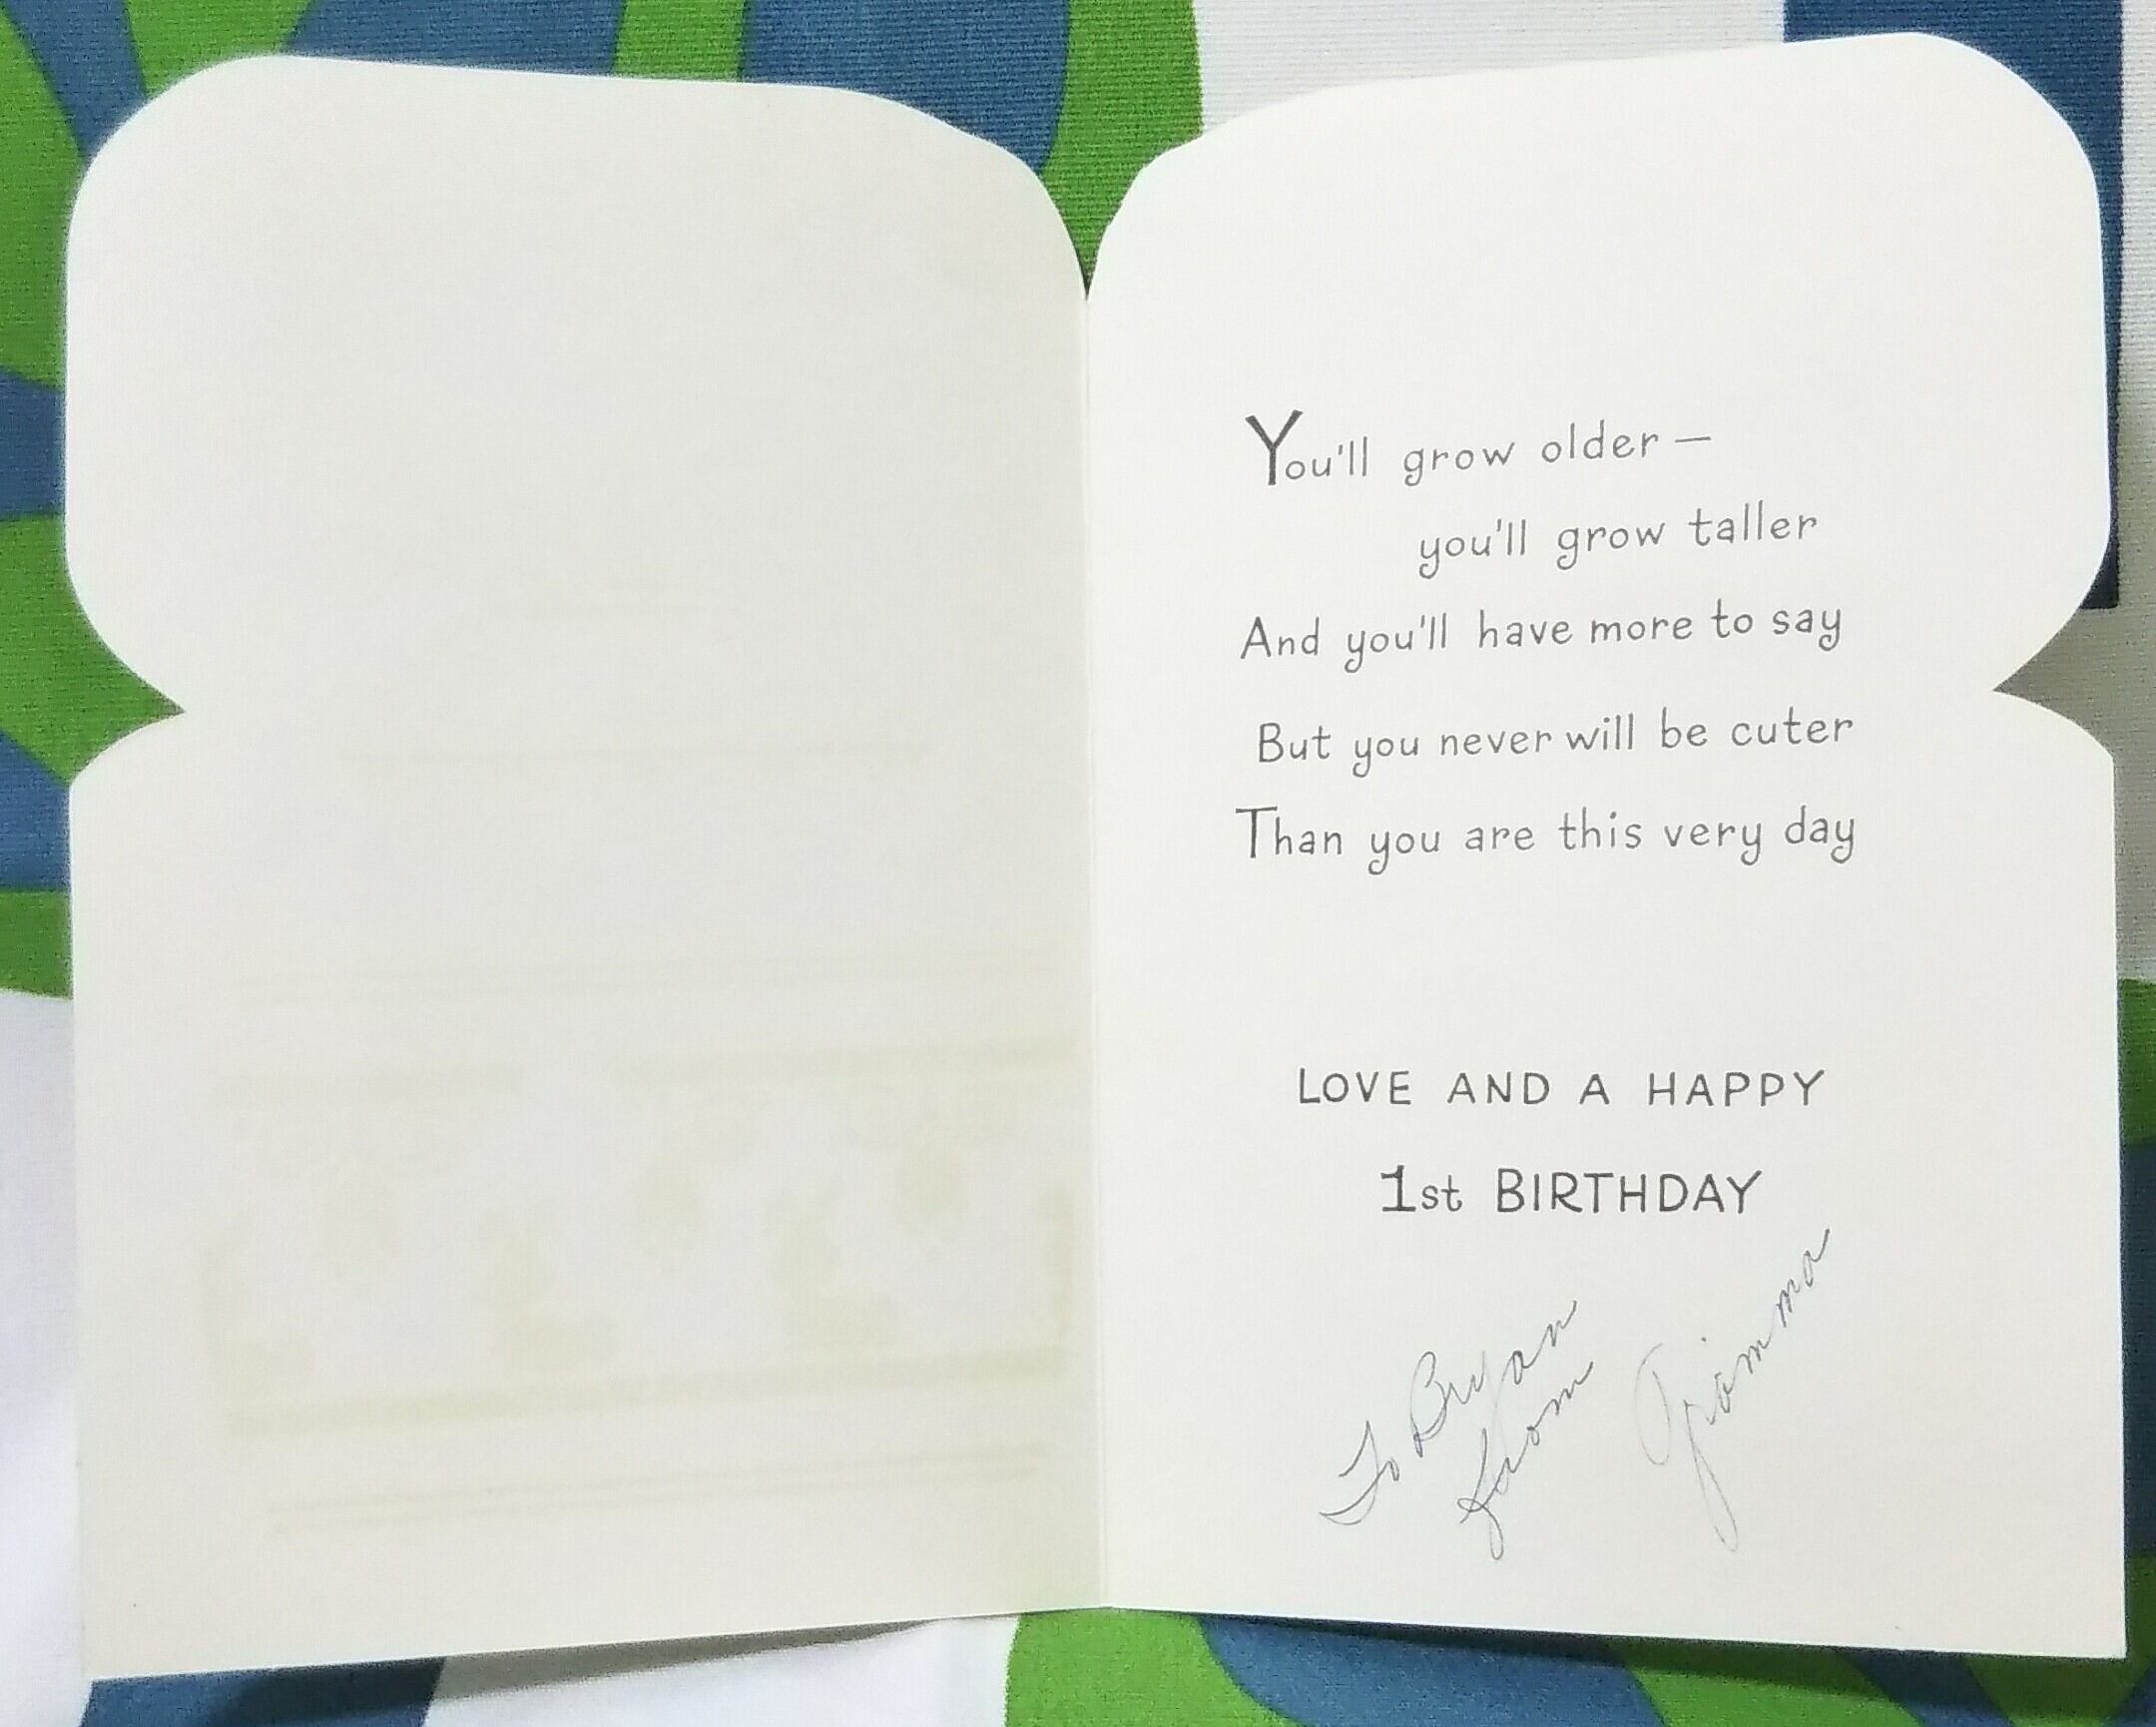 You'll grow older —
you'll grow taller
And you'll have more to say
But you never will be cuter
Than you are this very day
LOVE AND A HAPPY
1st BIRTHDAY
To Bryan
from Gramma